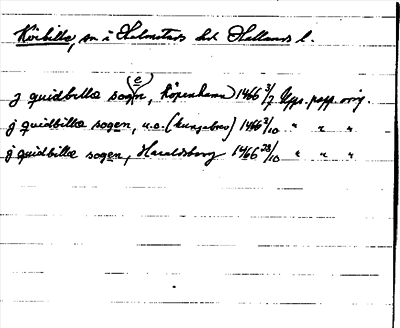 Kvibille, sn i Halmstads hd Hallands l.
j quidbillæ sog(e)n, Köpenhamn 1466 3/7 Upps. papp. orig.
j quidbillæ sogen, u.o. (kungabrev) 1466 2/10 " " "
j quidbillæ sogen, Haraldsborg 1466 28/10 " " "